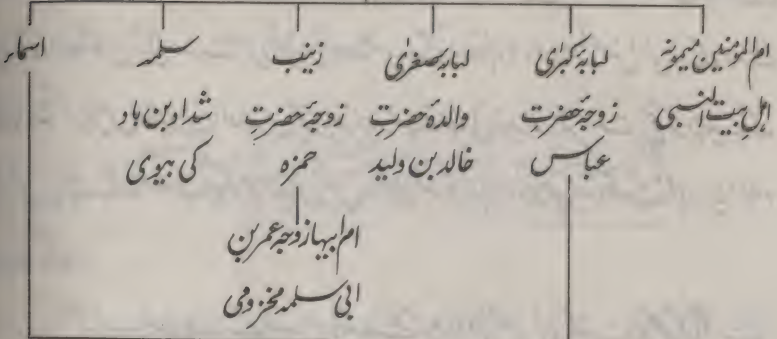 ام المومنین میمونہ
اہلِ بیت النبی
لبابہ کبریٰ
زوجۂ حضرتِ
عباس
لبابہ صغریٰ
والدۂ حضرتِ
خالد بن ولید
زینب
زوجۂ حضرتِ
حمزہ
ام ابیہا زوجہ عمر بن
ابی سلمہ مخزومی
سلمہ
شداد بن ہاد
کی بیوی
اسماء